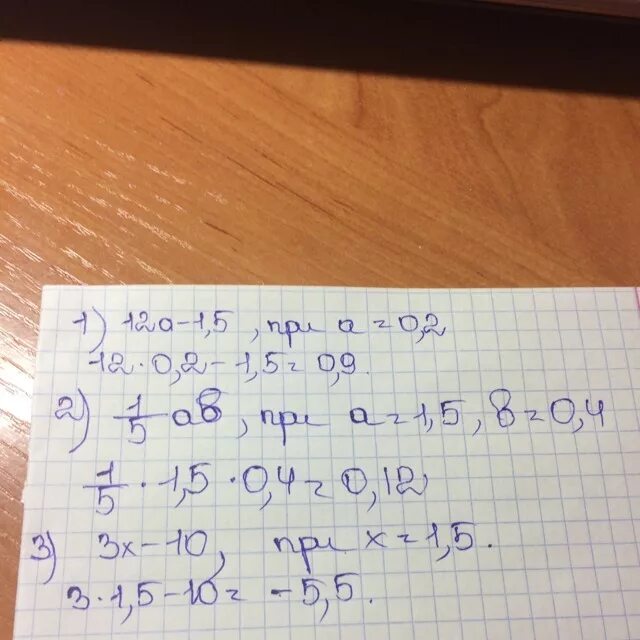 1) 12а-1,5 , при а = 0,2
12·0,2-1,5=0,9.
2) 1/5 ав, при а=1,5, в=0,4
1/5 · 1,5 · 0,4 = 0,12
3) 3х-10, при х=1,5.
3·1,5-10= -5,5.